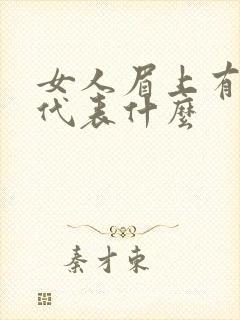 女人眉上有
代表什麼
秦才東